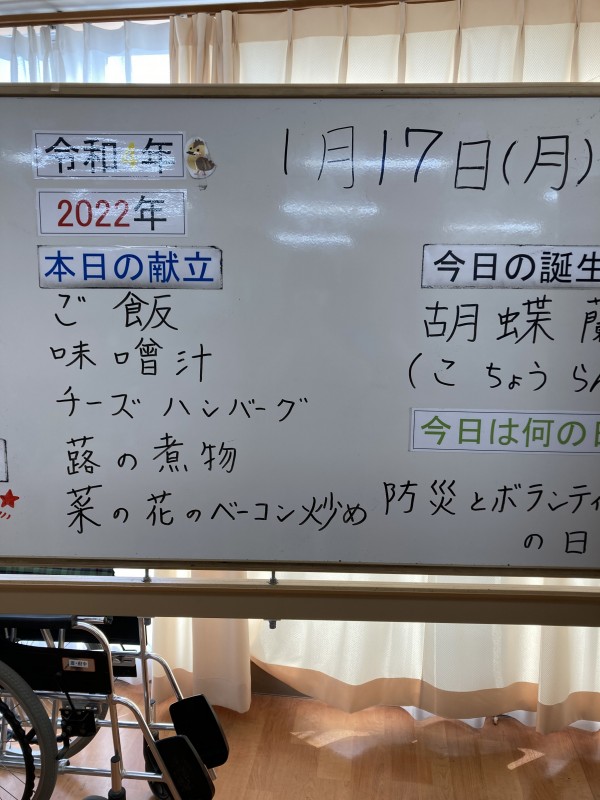 令和4年
1月17日(月)
2022年
本日の献立
ご飯
味噌汁
チーズハンバーグ
蕗の煮物
菜の花のベーコン炒め
今日の誕生
胡蝶蘭
(こちょうらん
今日は何の日
防災とボランティ
の日